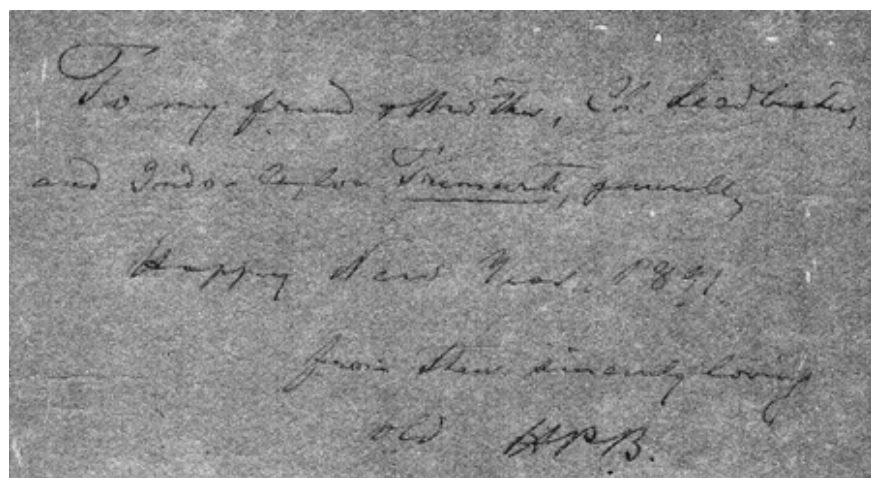 To my friend & Brother, Ch. Leadbeater,
and Indo-Ceylon Trimurti, generally
Happy New Year, 1891.
from their sincerely loving
old H.P.B.